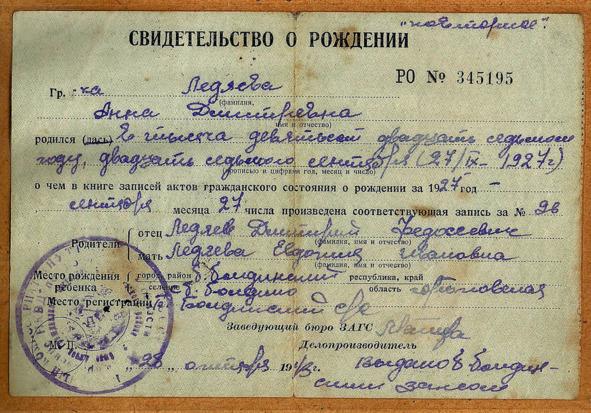 "повторное".
СВИДЕТЕЛЬСТВО О РОЖДЕНИИ
РО № 345195
Гр. ка Ледяева
(фамилия,
Анна Дмитревна
имя и отчество)
родился (лась) В тысяча девятьсот двадцать седьмом
году, двадцать седьмого сентября (27/IX-1927г)
(прописью и цифрами год, месяц и число)
о чем в книге записей актов гражданского состояния о рождении за 1927 год
сентября месяца 27 числа произведена соответствующая запись за № 96
Родители
отец Ледяев Дмитрий Федосеевич
(фамилия, имя и отчество)
мать Ледяева Евдокия Ивановна
(фамилия, имя и отчество)
Место рождения ребенка
город, район республика, край
селение область
Место регистрации
Заведующий бюро ЗАГС
М. П. Делопроизводитель
"28" октября 194
Выдано
загсом